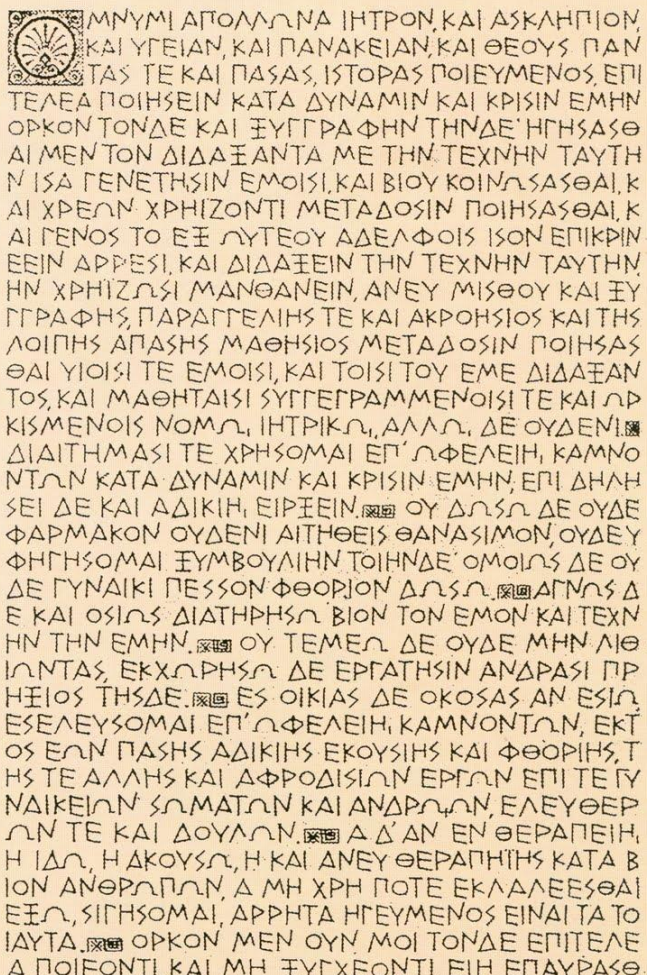 ΟΜΝΥΜΙ ΑΠΟΛΛΩΝΑ ΙΗΤΡΟΝ, ΚΑΙ ΑΣΚΛΗΠΙΟΝ,
ΚΑΙ ΥΓΕΙΑΝ, ΚΑΙ ΠΑΝΑΚΕΙΑΝ, ΚΑΙ ΘΕΟΥΣ ΠΑΝ
ΤΑΣ ΤΕ ΚΑΙ ΠΑΣΑΣ, ΙΣΤΟΡΑΣ ΠΟΙΕΥΜΕΝΟΣ, ΕΠΙ
ΤΕΛΕΑ ΠΟΙΗΣΕΙΝ ΚΑΤΑ ΔΥΝΑΜΙΝ ΚΑΙ ΚΡΙΣΙΝ ΕΜΗΝ
ΟΡΚΟΝ ΤΟΝΔΕ ΚΑΙ ΞΥΓΓΡΑΦΗΝ ΤΗΝΔΕ· ΗΓΗΣΑΣΘ
ΑΙ ΜΕΝ ΤΟΝ ΔΙΔΑΞΑΝΤΑ ΜΕ ΤΗΝ ΤΕΧΝΗΝ ΤΑΥΤΗ
Ν ΙΣΑ ΓΕΝΕΤΗΣΙΝ ΕΜΟΙΣΙ, ΚΑΙ ΒΙΟΥ ΚΟΙΝΩΣΑΣΘΑΙ, Κ
ΑΙ ΧΡΕΩΝ ΧΡΗΙΖΟΝΤΙ ΜΕΤΑΔΟΣΙΝ ΠΟΙΗΣΑΣΘΑΙ, Κ
ΑΙ ΓΕΝΟΣ ΤΟ ΕΞ ΩΥΤΕΟΥ ΑΔΕΛΦΟΙΣ ΙΣΟΝ ΕΠΙΚΡΙΝ
ΕΕΙΝ ΑΡΡΕΣΙ, ΚΑΙ ΔΙΔΑΞΕΙΝ ΤΗΝ ΤΕΧΝΗΝ ΤΑΥΤΗΝ,
ΗΝ ΧΡΗΪΖΩΣΙ ΜΑΝΘΑΝΕΙΝ, ΑΝΕΥ ΜΙΣΘΟΥ ΚΑΙ ΞΥ
ΓΓΡΑΦΗΣ, ΠΑΡΑΓΓΕΛΙΗΣ ΤΕ ΚΑΙ ΑΚΡΟΗΣΙΟΣ ΚΑΙ ΤΗΣ
ΛΟΙΠΗΣ ΑΠΑΣΗΣ ΜΑΘΗΣΙΟΣ ΜΕΤΑΔΟΣΙΝ ΠΟΙΗΣΑΣ
ΘΑΙ ΥΙΟΙΣΙ ΤΕ ΕΜΟΙΣΙ, ΚΑΙ ΤΟΙΣΙ ΤΟΥ ΕΜΕ ΔΙΔΑΞΑΝ
ΤΟΣ, ΚΑΙ ΜΑΘΗΤΑΙΣΙ ΣΥΓΓΕΓΡΑΜΜΕΝΟΙΣΙ ΤΕ ΚΑΙ ΩΡ
ΚΙΣΜΕΝΟΙΣ ΝΟΜΩι ΙΗΤΡΙΚΩι, ΑΛΛΩι ΔΕ ΟΥΔΕΝΙ.
ΔΙΑΙΤΗΜΑΣΙ ΤΕ ΧΡΗΣΟΜΑΙ ΕΠ' ΩΦΕΛΕΙΗι ΚΑΜΝΟ
ΝΤΩΝ ΚΑΤΑ ΔΥΝΑΜΙΝ ΚΑΙ ΚΡΙΣΙΝ ΕΜΗΝ, ΕΠΙ ΔΗΛΗ
ΣΕΙ ΔΕ ΚΑΙ ΑΔΙΚΙΗι ΕΙΡΞΕΙΝ. ΟΥ ΔΩΣΩ ΔΕ ΟΥΔΕ
ΦΑΡΜΑΚΟΝ ΟΥΔΕΝΙ ΑΙΤΗΘΕΙΣ ΘΑΝΑΣΙΜΟΝ, ΟΥΔΕ Υ
ΦΗΓΗΣΟΜΑΙ ΞΥΜΒΟΥΛΙΗΝ ΤΟΙΗΝΔΕ· ΟΜΟΙΩΣ ΔΕ ΟΥ
ΔΕ ΓΥΝΑΙΚΙ ΠΕΣΣΟΝ ΦΘΟΡΙΟΝ ΔΩΣΩ. ΑΓΝΩΣ Δ
Ε ΚΑΙ ΟΣΙΩΣ ΔΙΑΤΗΡΗΣΩ ΒΙΟΝ ΤΟΝ ΕΜΟΝ ΚΑΙ ΤΕΧΝ
ΗΝ ΤΗΝ ΕΜΗΝ. ΟΥ ΤΕΜΕΩ ΔΕ ΟΥΔΕ ΜΗΝ ΛΙΘ
ΙΩΝΤΑΣ, ΕΚΧΩΡΗΣΩ ΔΕ ΕΡΓΑΤΗΣΙΝ ΑΝΔΡΑΣΙ ΠΡ
ΗΞΙΟΣ ΤΗΣΔΕ. ΕΣ ΟΙΚΙΑΣ ΔΕ ΟΚΟΣΑΣ ΑΝ ΕΣΙΩ,
ΕΣΕΛΕΥΣΟΜΑΙ ΕΠ' ΩΦΕΛΕΙΗι ΚΑΜΝΟΝΤΩΝ, ΕΚΤ
ΟΣ ΕΩΝ ΠΑΣΗΣ ΑΔΙΚΙΗΣ ΕΚΟΥΣΙΗΣ ΚΑΙ ΦΘΟΡΙΗΣ, Τ
ΗΣ ΤΕ ΑΛΛΗΣ ΚΑΙ ΑΦΡΟΔΙΣΙΩΝ ΕΡΓΩΝ ΕΠΙ ΤΕ ΓΥ
ΝΑΙΚΕΙΩΝ ΣΩΜΑΤΩΝ ΚΑΙ ΑΝΔΡΩΩΝ, ΕΛΕΥΘΕΡ
ΩΝ ΤΕ ΚΑΙ ΔΟΥΛΩΝ. Α Δ' ΑΝ ΕΝ ΘΕΡΑΠΕΙΗι
Η ΙΔΩ, Η ΑΚΟΥΣΩ, Η ΚΑΙ ΑΝΕΥ ΘΕΡΑΠΗΪΗΣ ΚΑΤΑ Β
ΙΟΝ ΑΝΘΡΩΠΩΝ, Α ΜΗ ΧΡΗ ΠΟΤΕ ΕΚΛΑΛΕΕΣΘΑΙ
ΕΞΩ, ΣΙΓΗΣΟΜΑΙ, ΑΡΡΗΤΑ ΗΓΕΥΜΕΝΟΣ ΕΙΝΑΙ ΤΑ ΤΟ
ΙΑΥΤΑ. ΟΡΚΟΝ ΜΕΝ ΟΥΝ ΜΟΙ ΤΟΝΔΕ ΕΠΙΤΕΛΕ
Α ΠΟΙΕΟΝΤΙ ΚΑΙ ΜΗ ΞΥΓΧΕΟΝΤΙ ΕΙΗ ΕΠΑΥΡΑΣΘ